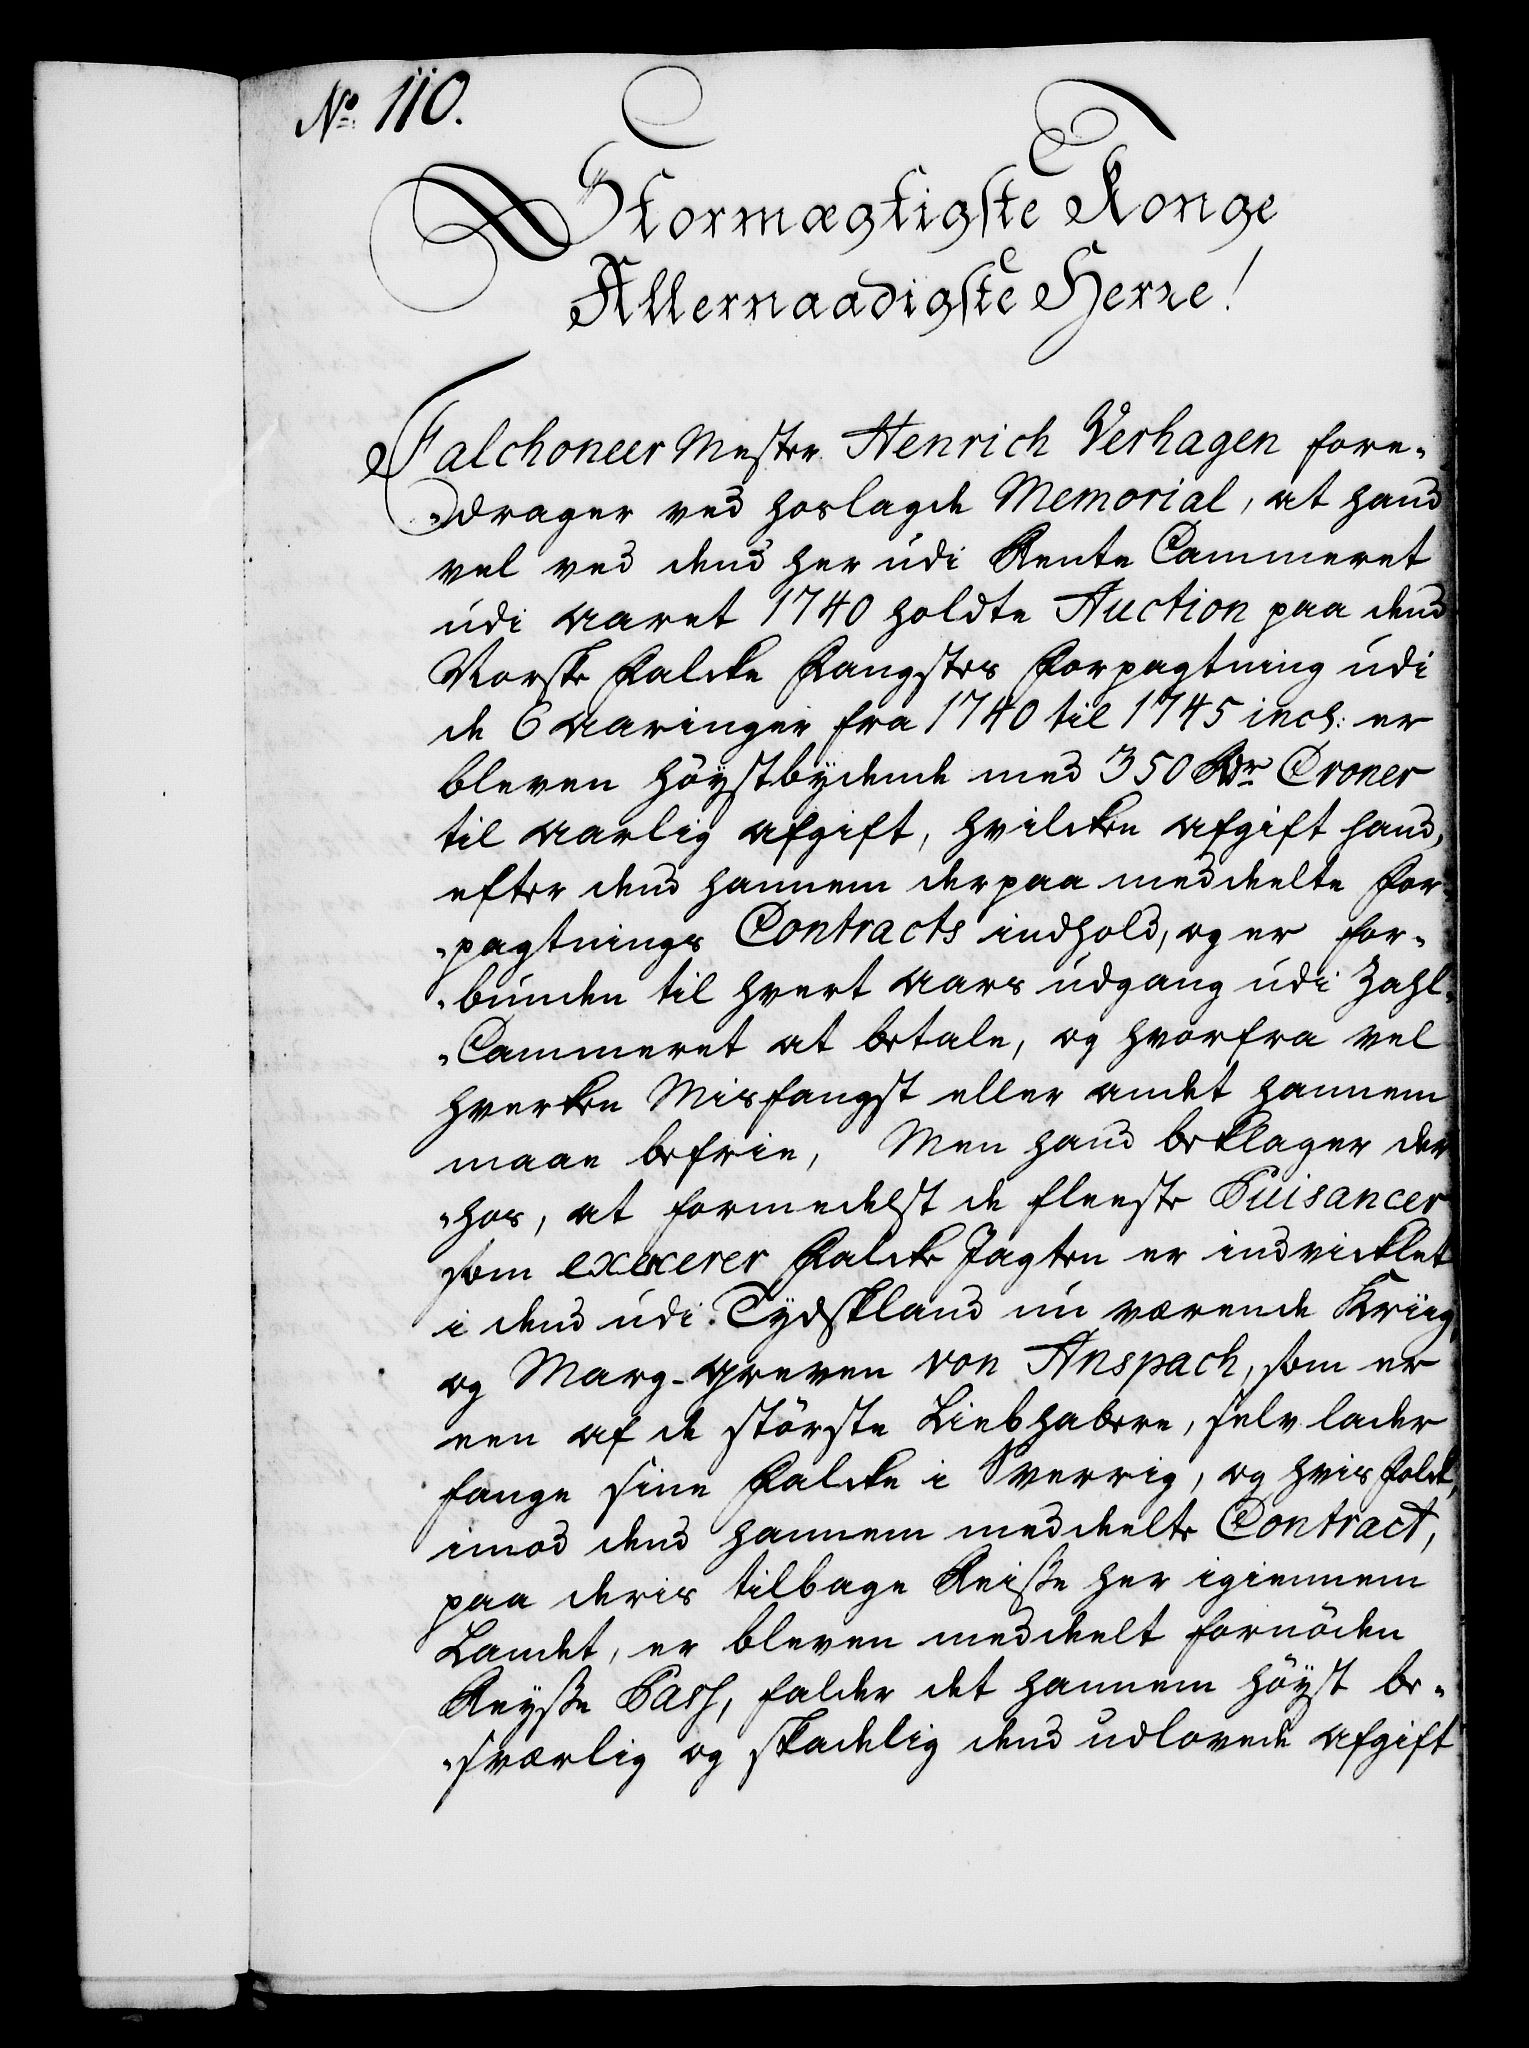 No: 110.
Stormægtigste Konge
Allernaadigste Herre!
Falchoneer Mester Henrich Verhagen fore-
-drager ved hoslagde Memorial, at hand
vel ved dend her udi Rente Cammeret
udi aaret 1740 holdte Auction paa dend
Norske Falcke Fangstes Forpagtning udi
de 6 aaringer fra 1740 til 1745 incl: er
bleven höystbydende med 350 Rdr Croner
til aarlig afgift, hvilcken afgift hand,
efter dend hannem derpaa meddeelte For-
-pagtnings Contracts indhold, og er for-
-bunden til hvert aars udgang udi Zahl-
-Cammeret at betale, og hvorfra vel
hverken Misfangst eller andet hannem
maae befrie, Men hand beklager der
-hos, at formedelst de fleeste Puisancer
som execerer Falcke Jagten er indvicklet
i dend udi Tydskland nu værende Kriig,
og Marg-Greven von Anspach, som er
een af de störste Liebhabere, selv lader
fange sine Falcke i Sverrig, og hvis Folck,
imod dend hannem meddeelte Contract,
paa deris tilbage Reisse her igiennem
Landet, er bleven meddeelt fornöden
Reysse Pass, falder det hannem höyst be-
-sværlig og skadelig dend udlovede afgift